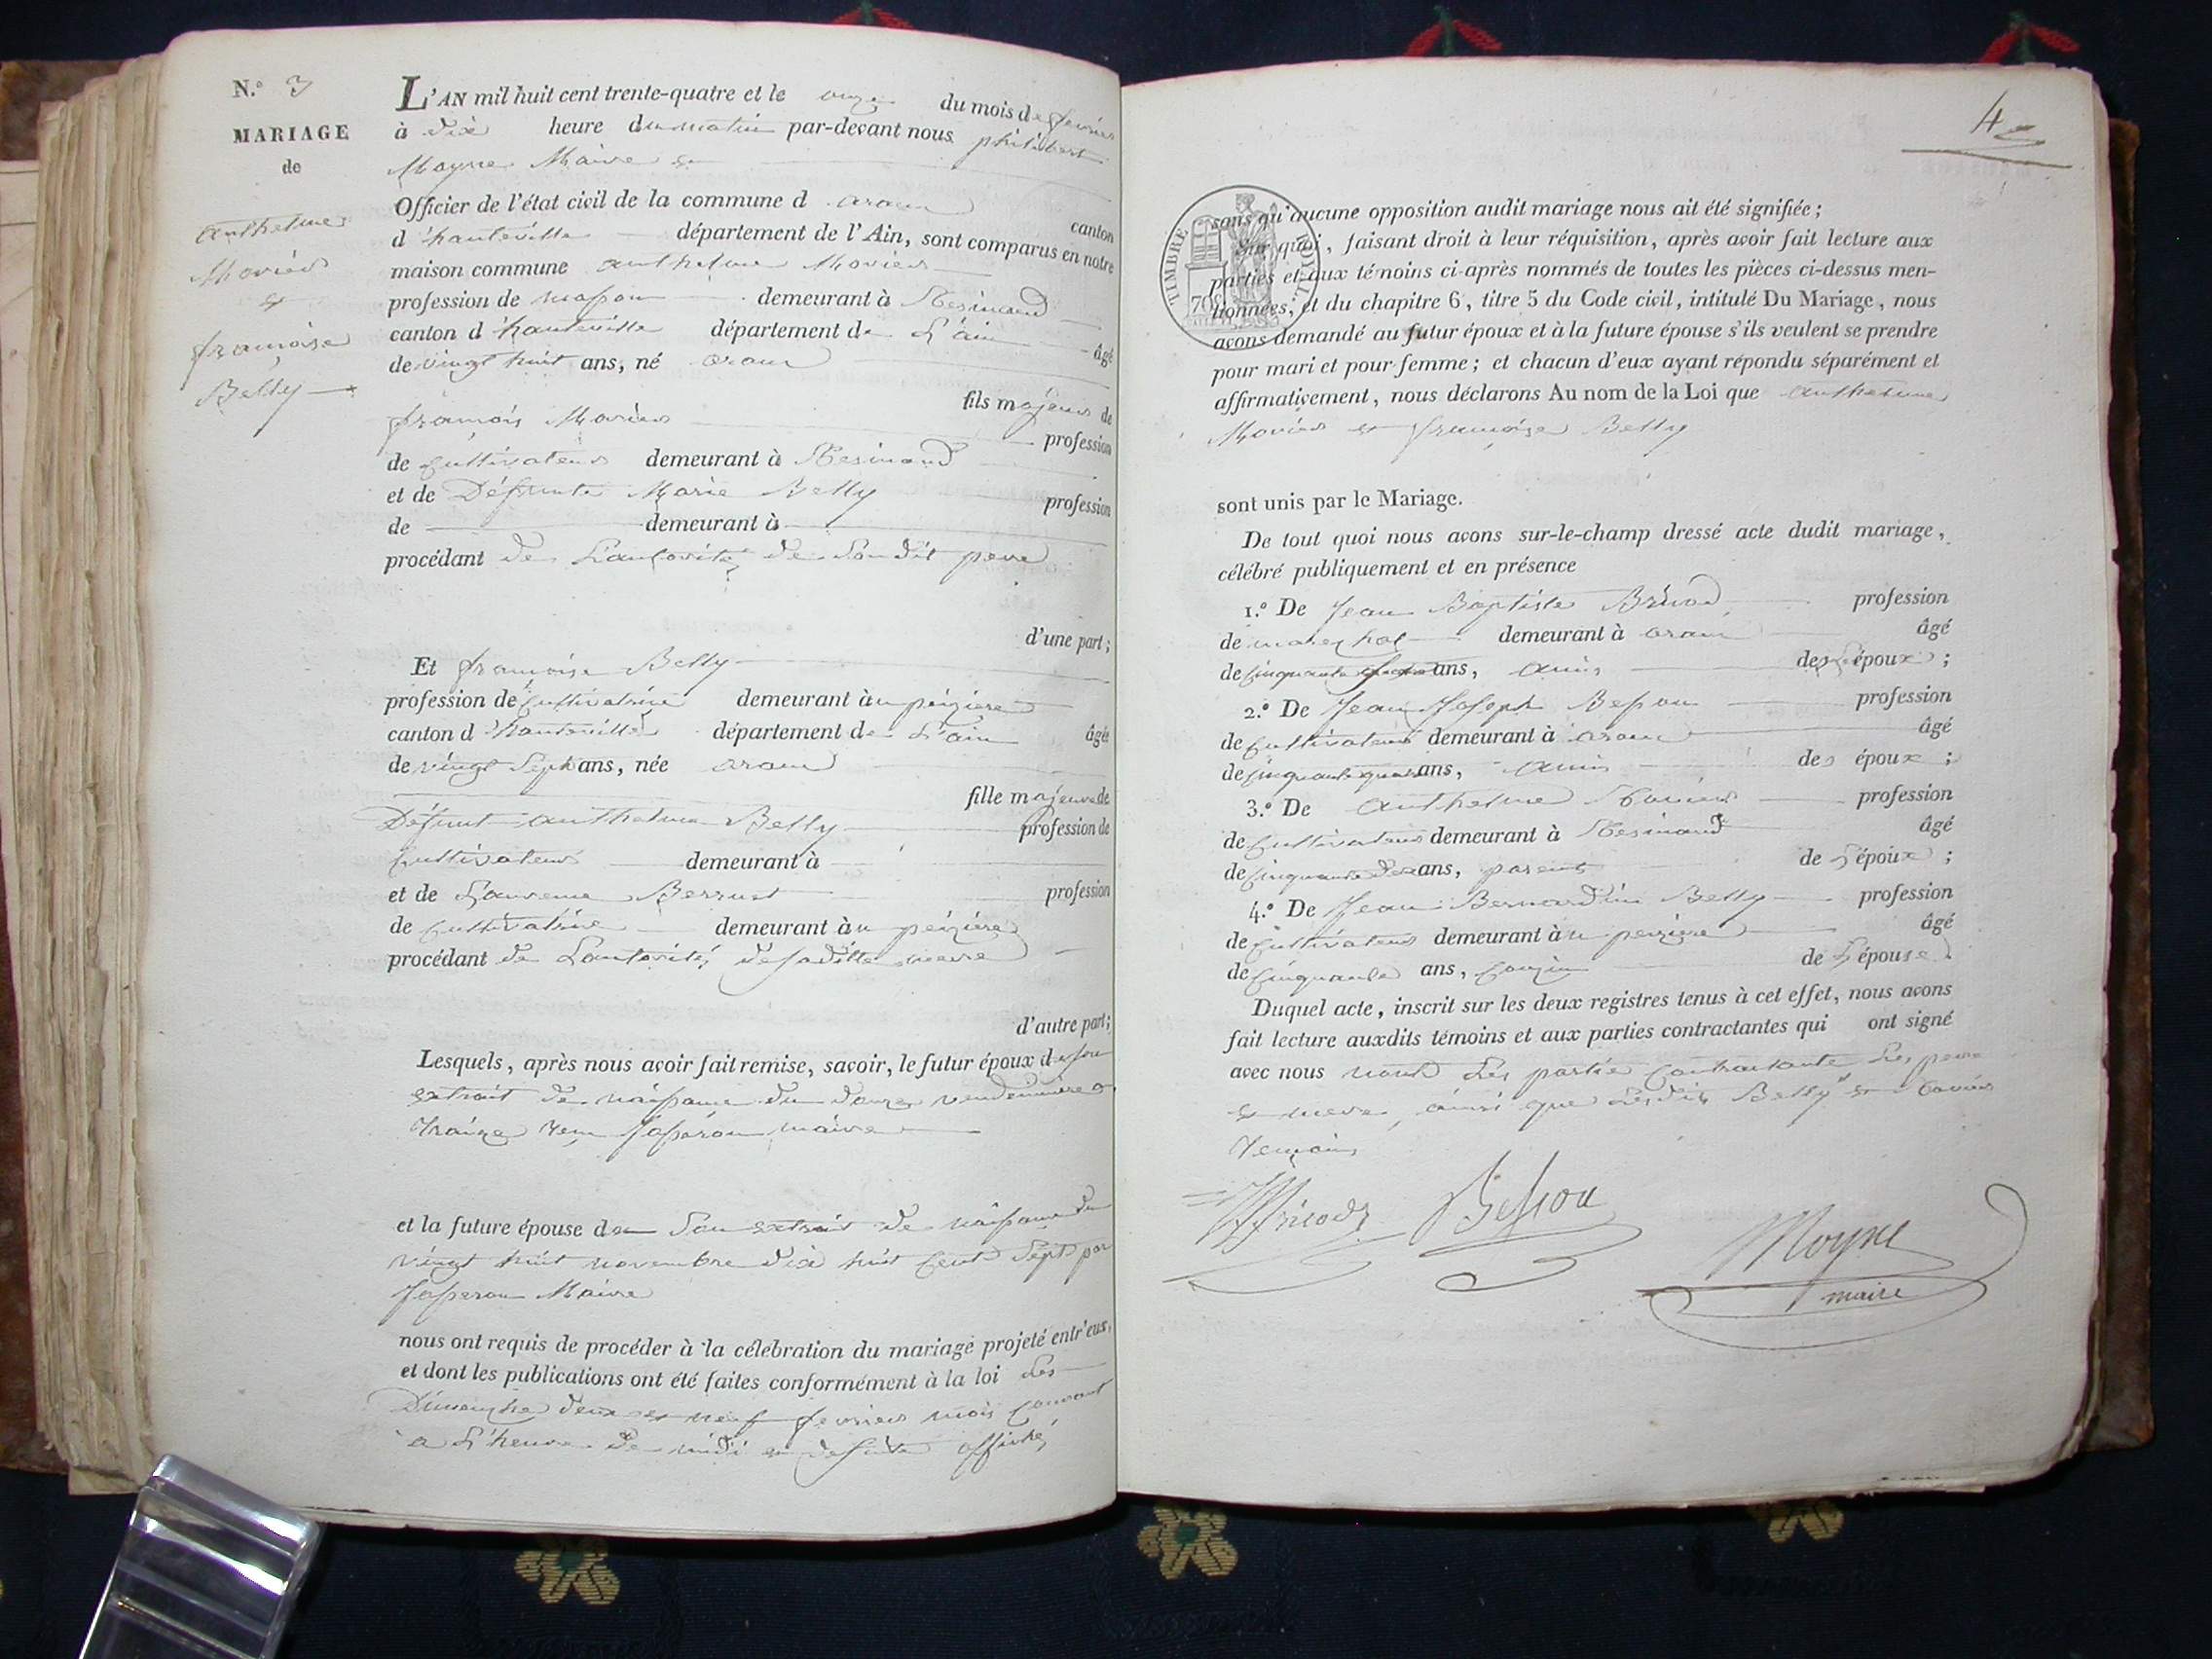 N.° 3
MARIAGE
de
anthelme
Moriers
et
françoise
Belly
L'AN mil huit cent trente-quatre et le onze du mois de fevrier
à dix heure du matin par-devant nous philibert
Moyne Maire et
Officier de l'état civil de la commune d aranc
canton
d'hauteville département de l'Ain, sont comparus en notre
maison commune anthelme
profession de masson demeurant à Resinand
canton d'hauteville département de L'ain âgé
de vingt huit ans, né aranc
fils majeur de
françois
profession
de cultivateur demeurant à Resinand
et de Défunte Marie Belly profession
de demeurant à
procédant de L'autorité de Son dit pere
d'une part;
Et françoise Belly
profession de cultivatrice demeurant à
canton d'hauteville département de L'ain âgée
de vingt Sept ans, née aranc
fille majeure de
Défunt anthelme Belly profession de
cultivateur demeurant à
et de Laurence profession
de cultivatrice demeurant à
procédant de Lautorité de Saditte mere
d'autre part;
Lesquels, après nous avoir fait remise, savoir, le futur époux de son
extrait de naissance du douze vendemiere
maire
et la future épouse de Son extrait de naissance du
vingt huit novembre dix huit Cent Sept par
Maire
nous ont requis de procéder à la célébration du mariage projeté entr'eux,
et dont les publications ont été faites conformément à la loi Les
Dimenche deux et neuf fevrier mois Courant
a L'heure de midi et de Suite affiché
4
TIMBRE ROYAL
70c
sans qu'aucune opposition audit mariage nous ait été signifiée;
Sur quoi, faisant droit à leur réquisition, après avoir fait lecture aux
parties et aux témoins ci-après nommés de toutes les pièces ci-dessus men-
tionnées, et du chapitre 6, titre 5 du Code civil, intitulé Du Mariage, nous
avons demandé au futur époux et à la future épouse s'ils veulent se prendre
pour mari et pour femme; et chacun d'eux ayant répondu séparément et
affirmativement, nous déclarons Au nom de la Loi que anthelme
et françoise Belly
sont unis par le Mariage.
De tout quoi nous avons sur-le-champ dressé acte dudit mariage,
célébré publiquement et en présence
1.° De Jean Baptiste profession
de marechal demeurant à aranc âgé
de cinquante ans, amis des époux;
2.° De Jean Joseph Besson profession
de cultivateur demeurant à aranc âgé
de cinquante quatre ans, amis des époux;
3.° De anthelme profession
de cultivateur demeurant à Resinand âgé
de cinquante deux ans, parent de L'époux;
4.° De Jean Bernardin Belly profession
de cultivateur demeurant à âgé
de cinquante ans, cousin de L'épouse
Duquel acte, inscrit sur les deux registres tenus à cet effet, nous avons
fait lecture auxdits témoins et aux parties contractantes qui ont signé
avec nous non Les partie Contractante Les pere
et mere, ainsi que Lesdits Belly et
temoins
Besson
Moyne
maire